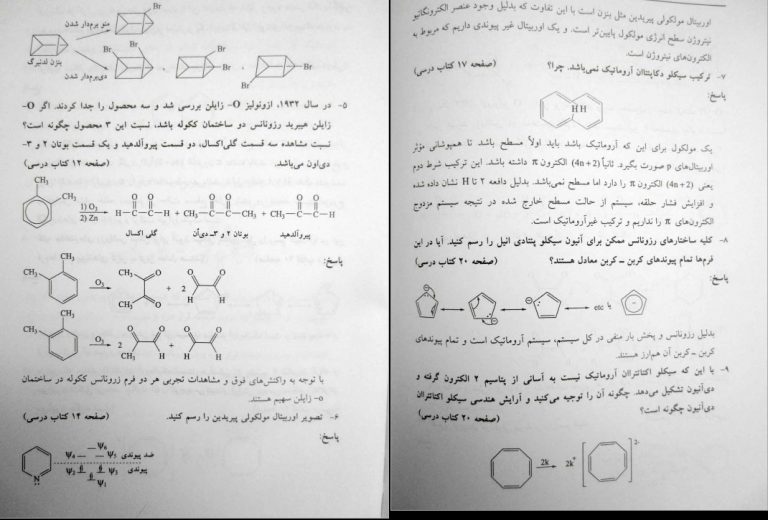 منو برم‌دار شدن
Br
بنزن لدنبرگ
دی‌برم‌دار شدن
Br Br
Br
Br
Br
Br
۵- در سال ۱۹۳۲، ازونولیز O- زایلن بررسی شد و سه محصول را جدا کردند. اگر O-
زایلن هیبرید رزونانس دو ساختمان ککوله باشد، نسبت این ۳ محصول چگونه است؟
نسبت مشاهده سه قسمت گلی‌اکسال، دو قسمت پیروآلدهید و یک قسمت بوتان ۲ و ۳-
دی‌اون می‌باشد. (صفحه ۱۲ کتاب درسی)
CH₃
CH₃
1) O₃
2) Zn
O O
H—C—C—H + CH₃—C—C—CH₃ + CH₃—C—C—H
گلی اکسال
بوتان ۲ و ۳ـ دی‌آن
پیروآلدهید
پاسخ:
CH₃
CH₃
O₃
CH₃
CH₃
O
O
+ 2
O O
CH₃
CH₃
O₃
2
CH₃
O
O
H
+
H
O
O
H
با توجه به واکنش‌های فوق و مشاهدات تجربی هر دو فرم رزونانس ککوله در ساختمان
o- زایلن سهیم هستند.
۶- تصویر اوربیتال مولکولی پیریدین را رسم کنید. (صفحه ۱۴ کتاب درسی)
پاسخ:
Ψ₆
Ψ₄ Ψ₅ ضد پیوندی
Ψ₂ Ψ₃ پیوندی
Ψ₁
N
اوربیتال مولکولی پیریدین مثل بنزن است با این تفاوت که بدلیل وجود عنصر الکترونگاتیو
نیتروژن سطح انرژی مولکول پایین‌تر است. و یک اوربیتال غیر پیوندی داریم که مربوط به
الکترون‌های نیتروژن است.
۷- ترکیب سیکلو دکاپنتاان آروماتیک نمی‌باشد. چرا؟ (صفحه ۱۷ کتاب درسی)
پاسخ:
H H
یک مولکول برای این که آروماتیک باشد باید اولاً مسطح باشد تا همپوشانی مؤثر
اوربیتال‌های p صورت بگیرد. ثانیاً (4n+2) الکترون π داشته باشد. این ترکیب شرط دوم
یعنی (4n+2) الکترون π را دارد اما مسطح نمی‌باشد. بدلیل دافعه ۲ تا H نشان داده شده
و افزایش فشار حلقه، سیستم از حالت مسطح خارج شده در نتیجه سیستم مزدوج
الکترون‌های π را نداریم و ترکیب غیرآروماتیک است.
۸- کلیه ساختارهای رزونانس ممکن برای آنیون سیکلو پنتادی انیل را رسم کنید. آیا در این
فرم‌ها تمام پیوندهای کربن ـ کربن معادل هستند؟ (صفحه ۲۰ کتاب درسی)
پاسخ:
etc یا
بدلیل رزونانس و پخش بار منفی در کل سیستم، سیستم آروماتیک است و تمام پیوندهای
کربن ـ کربن آن هم‌ارز هستند.
۹- با این که سیکلو اکتاتتراان آروماتیک نیست به آسانی از پتاسیم ۲ الکترون گرفته و
دی‌آنیون تشکیل می‌دهد. چگونه آن را توجیه می‌کنید و آرایش هندسی سیکلو اکتاتتراان
دی‌آنیون چگونه است؟ (صفحه ۲۰ کتاب درسی)
2k
2k⁺
2-